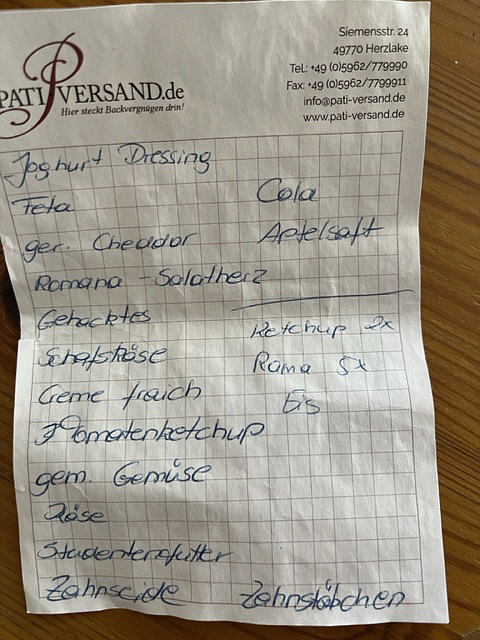 PATI VERSAND.de
Hier steckt Backvergnügen drin!
Siemensstr. 24
49770 Herzlake
Tel.: +49 (0)5962/779990
Fax: +49 (0)5962/7799911
info@pati-versand.de
www.pati-versand.de
Joghurt Dressing
Feta
ger. Cheddar
Romana-Salatherz
Gehacktes
Schafskäse
Creme fraich
Tomatenketchup
gem. Gemüse
Käse
Studentenfutter
Zahnseide Zahnstäbchen
Cola
Apfelsaft
Ketchup 2x
Rama 5x
Eis